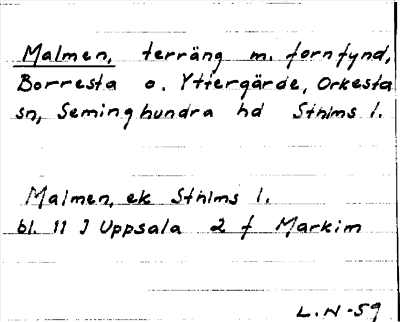 Malmen, terräng m. fornfynd,
Borresta o. Yttergärde, Orkesta
sn, Seminghundra hd Sthlms l.
Malmen, ek Sthlms l.
bl. 11 J Uppsala 2 f Markim
L.N-59